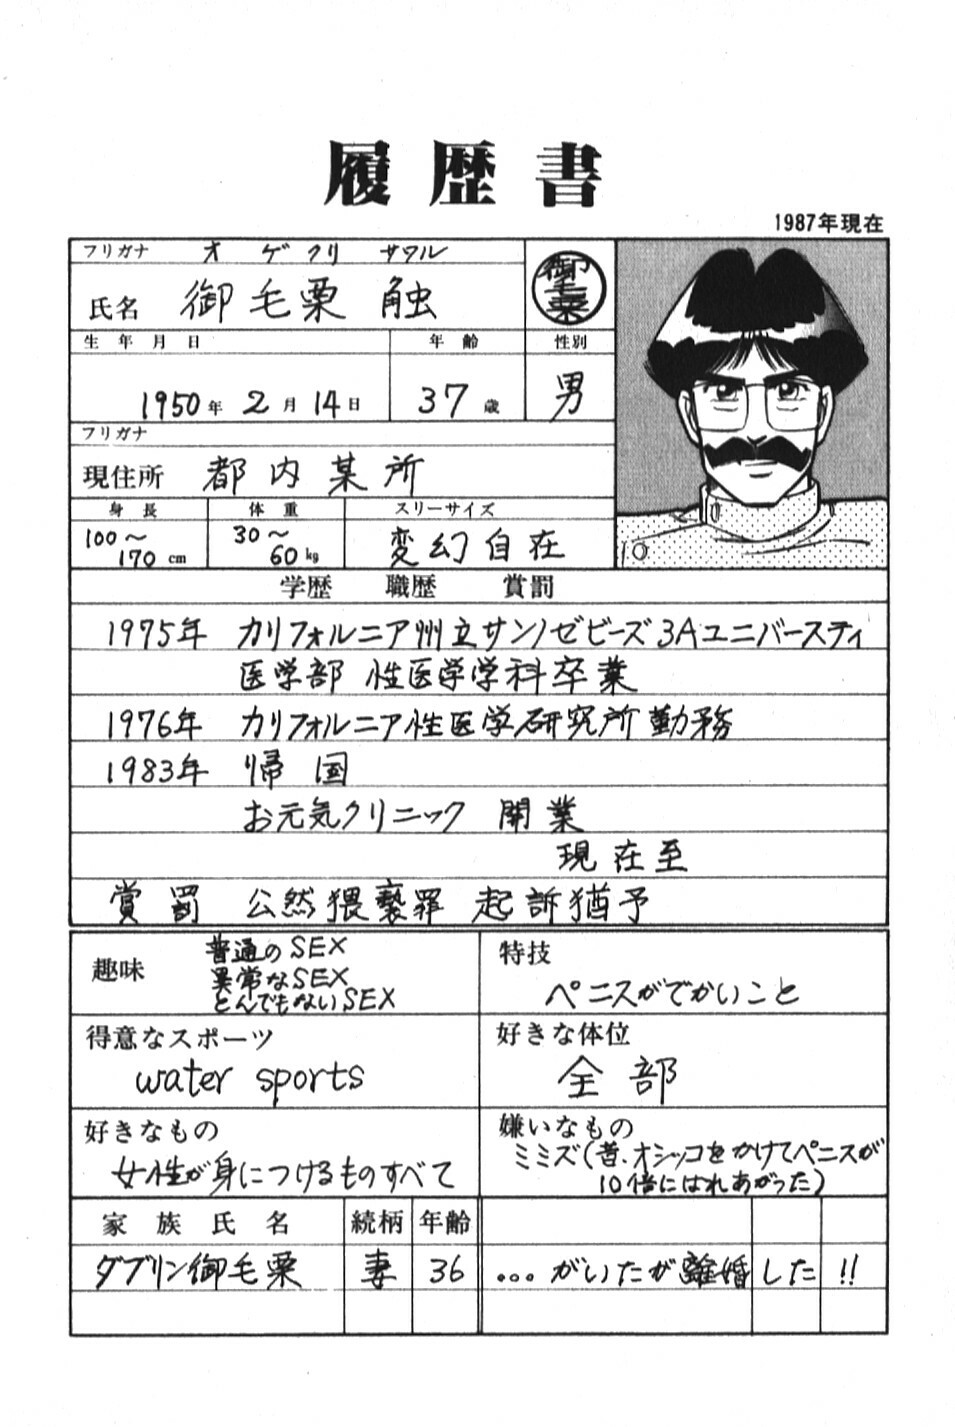 履歴書
1987年現在
フリガナ オゲクリ サワル
氏名 御毛栗 触
御毛栗
生年月日 年齢 性別
1950年 2月 14日 37歳 男
フリガナ
現住所 都内某所
身長 体重 スリーサイズ
100～170cm 30～60kg 変幻自在
学歴 職歴 賞罰
1975年 カリフォルニア州立サンノゼビーズ3Aユニバースティ
医学部 性医学学科卒業
1976年 カリフォルニア性医学研究所勤務
1983年 帰国
お元気クリニック 開業
現在至
賞罰 公然猥褻罪 起訴猶予
趣味 普通のSEX
異常なSEX
とんでもないSEX
特技
ペニスがでかいこと
得意なスポーツ
water sports
好きな体位
全部
好きなもの
女性が身につけるものすべて
嫌いなもの
ミミズ(昔、オシッコをかけてペニスが
10倍にはれあがった)
家族氏名 続柄 年齢
ダブリン御毛栗 妻 36 ...がいたが離婚した!!